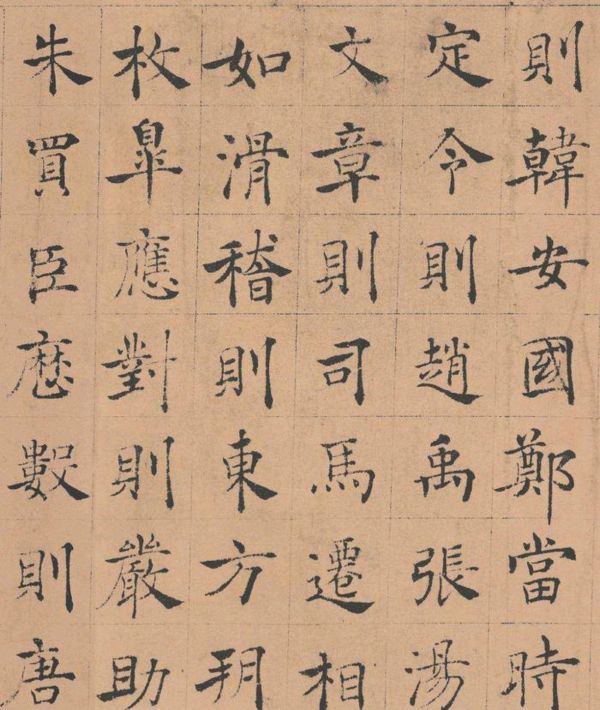 則韓安國鄭當時
定令則趙禹張湯
文章則司馬遷相
如滑稽則東方朔
枚皐應對則嚴助
朱買臣曆數則唐